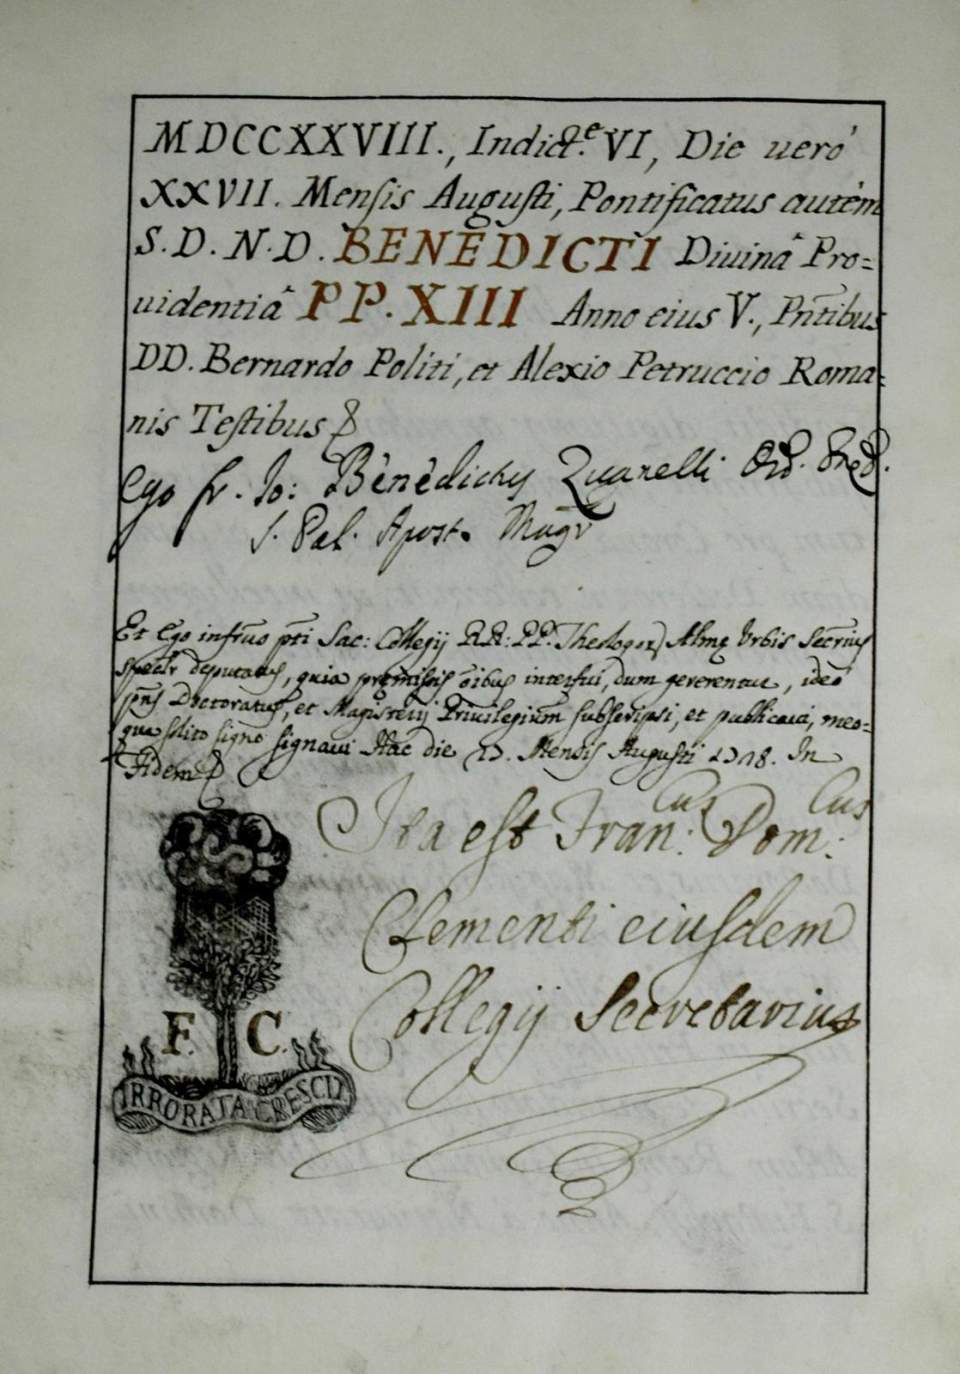 MDCCXXVIII., Indict.e VI, Die uerò
XXVII. Mensis Augusti, Pontificatus autèm
S.D.N.D. BENEDICTI Diuinâ Pro=
uidentiâ PP. XIII Anno eius V., Pñtibus
DD. Bernardo Politi, et Alexio Petruccio Roma=
nis Testibus
Ego fr. Io: Benedictus Zuanelli Ord. Pred.
S. Pal. Apost. Magr
Et Ego infrus pti Sac: Collegij RR: PP. Theologor Almę Urbis Secrius
deputatus, quia premissis oibus interfui, dum gererentur, ideò
pñs Doctoratus, et Magisterij Priuilegium subscripsi, et publicaui, meo-
que solito signo signaui Hac die 27. Mensis Augusti 1728. In
Fidem
Ita est Fran:cus Dom:cus
Clementi eiusdem
Collegij Secretarius
F. C.
IRRORATA CRESCIT